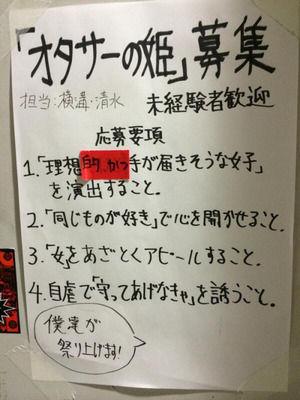 「オタサーの姫」募集
担当:横溝・清水 未経験者歓迎
応募要項
1.「理想的、かつ手が届きそうな女子」
を演出すること。
2.「同じものが好き」で心を開かせること.
3.「女」をあざとくアピールすること.
4.自虐で「守ってあげなきゃ」を誘うこと.
僕達が
祭り上げます!